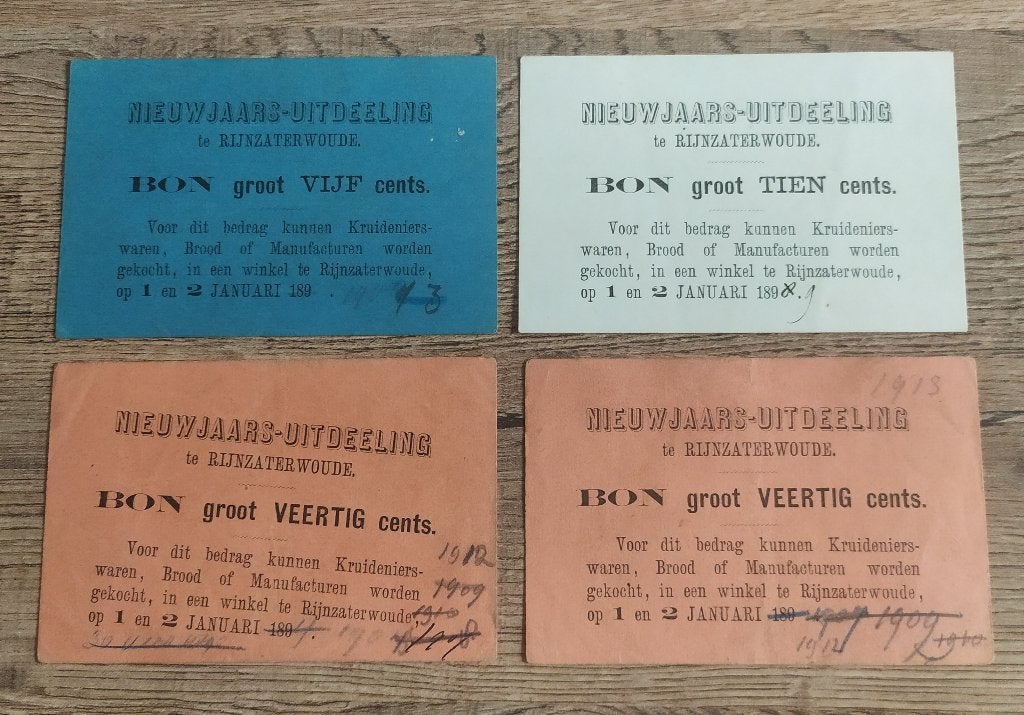 NIEUWJAARS-UITDEELING
te RIJNZATERWOUDE.
BON groot VIJF cents.
Voor dit bedrag kunnen Kruideniers-
waren, Brood of Manufacturen worden
gekocht, in een winkel te Rijnzaterwoude,
op 1 en 2 JANUARI 189 .
NIEUWJAARS-UITDEELING
te RIJNZATERWOUDE.
BON groot TIEN cents.
Voor dit bedrag kunnen Kruideniers-
waren, Brood of Manufacturen worden
gekocht, in een winkel te Rijnzaterwoude,
op 1 en 2 JANUARI 189 . 9
NIEUWJAARS-UITDEELING
te RIJNZATERWOUDE.
BON groot VEERTIG cents.
Voor dit bedrag kunnen Kruideniers- 1912
waren, Brood of Manufacturen worden 1909
gekocht, in een winkel te Rijnzaterwoude, 1910
op 1 en 2 JANUARI 189 1908
1913
NIEUWJAARS-UITDEELING
te RIJNZATERWOUDE.
BON groot VEERTIG cents.
Voor dit bedrag kunnen Kruideniers-
waren, Brood of Manufacturen worden
gekocht, in een winkel te Rijnzaterwoude,
op 1 en 2 JANUARI 189 1909
1912 1910